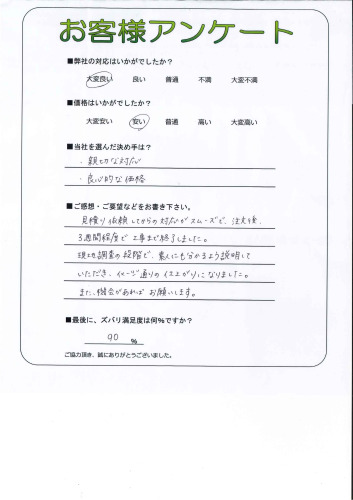 お客様アンケート
■弊社の対応はいかがでしたか?
大変良い 良い 普通 不満 大変不満
■価格はいかがでしたか?
大変安い 安い 普通 高い 大変高い
■当社を選んだ決め手は?
・親切な対応
・良心的な価格
■ご感想・ご要望などをお書き下さい。
見積り依頼してからの対応がスムーズで、注文後、
3週間程度で工事まで終了しました。
現地調査の段階で、素人にも分かるよう説明して
いただき、イメージ通りの仕上がりになりました。
また、機会があればお願いします。
■最後に、ズバリ満足度は何%ですか?
90 %
ご協力頂き、誠にありがとうございました。